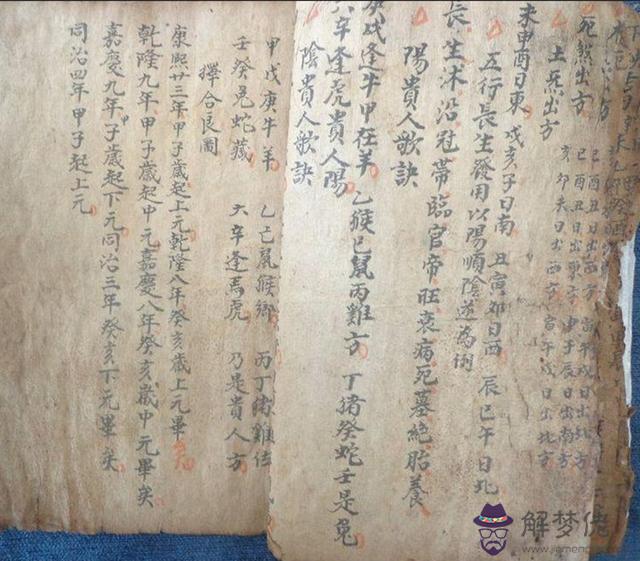 死煞出方
土煞出方
亥卯未日出西方 寅午戌日出北方
未申酉日東 戌亥子日南 丑寅卯日西 辰巳午日北
五行長生發用以陽順陰逆為例
長生沐浴冠帶臨官帝旺衰病死墓絕胎養
陽貴人歌訣
庚戌逢牛甲在羊 乙猴己鼠丙雞方 丁猪癸蛇壬是兔
六辛逢虎貴人陽
陰貴人歌訣
甲戊庚牛羊 乙己鼠猴鄉 丙丁猪雞位
壬癸兔蛇藏 六辛逢馬虎 乃是貴人方
擇合良圖
康熙廿三年甲子歲起上元乾隆八年癸亥歲上元畢
乾隆九年甲子歲起中元嘉慶八年癸亥歲中元畢矣
嘉慶九年子歲起下元同治三年癸亥下元畢矣
同治四年甲子起上元
解梦佬
www.jiemenglao.com